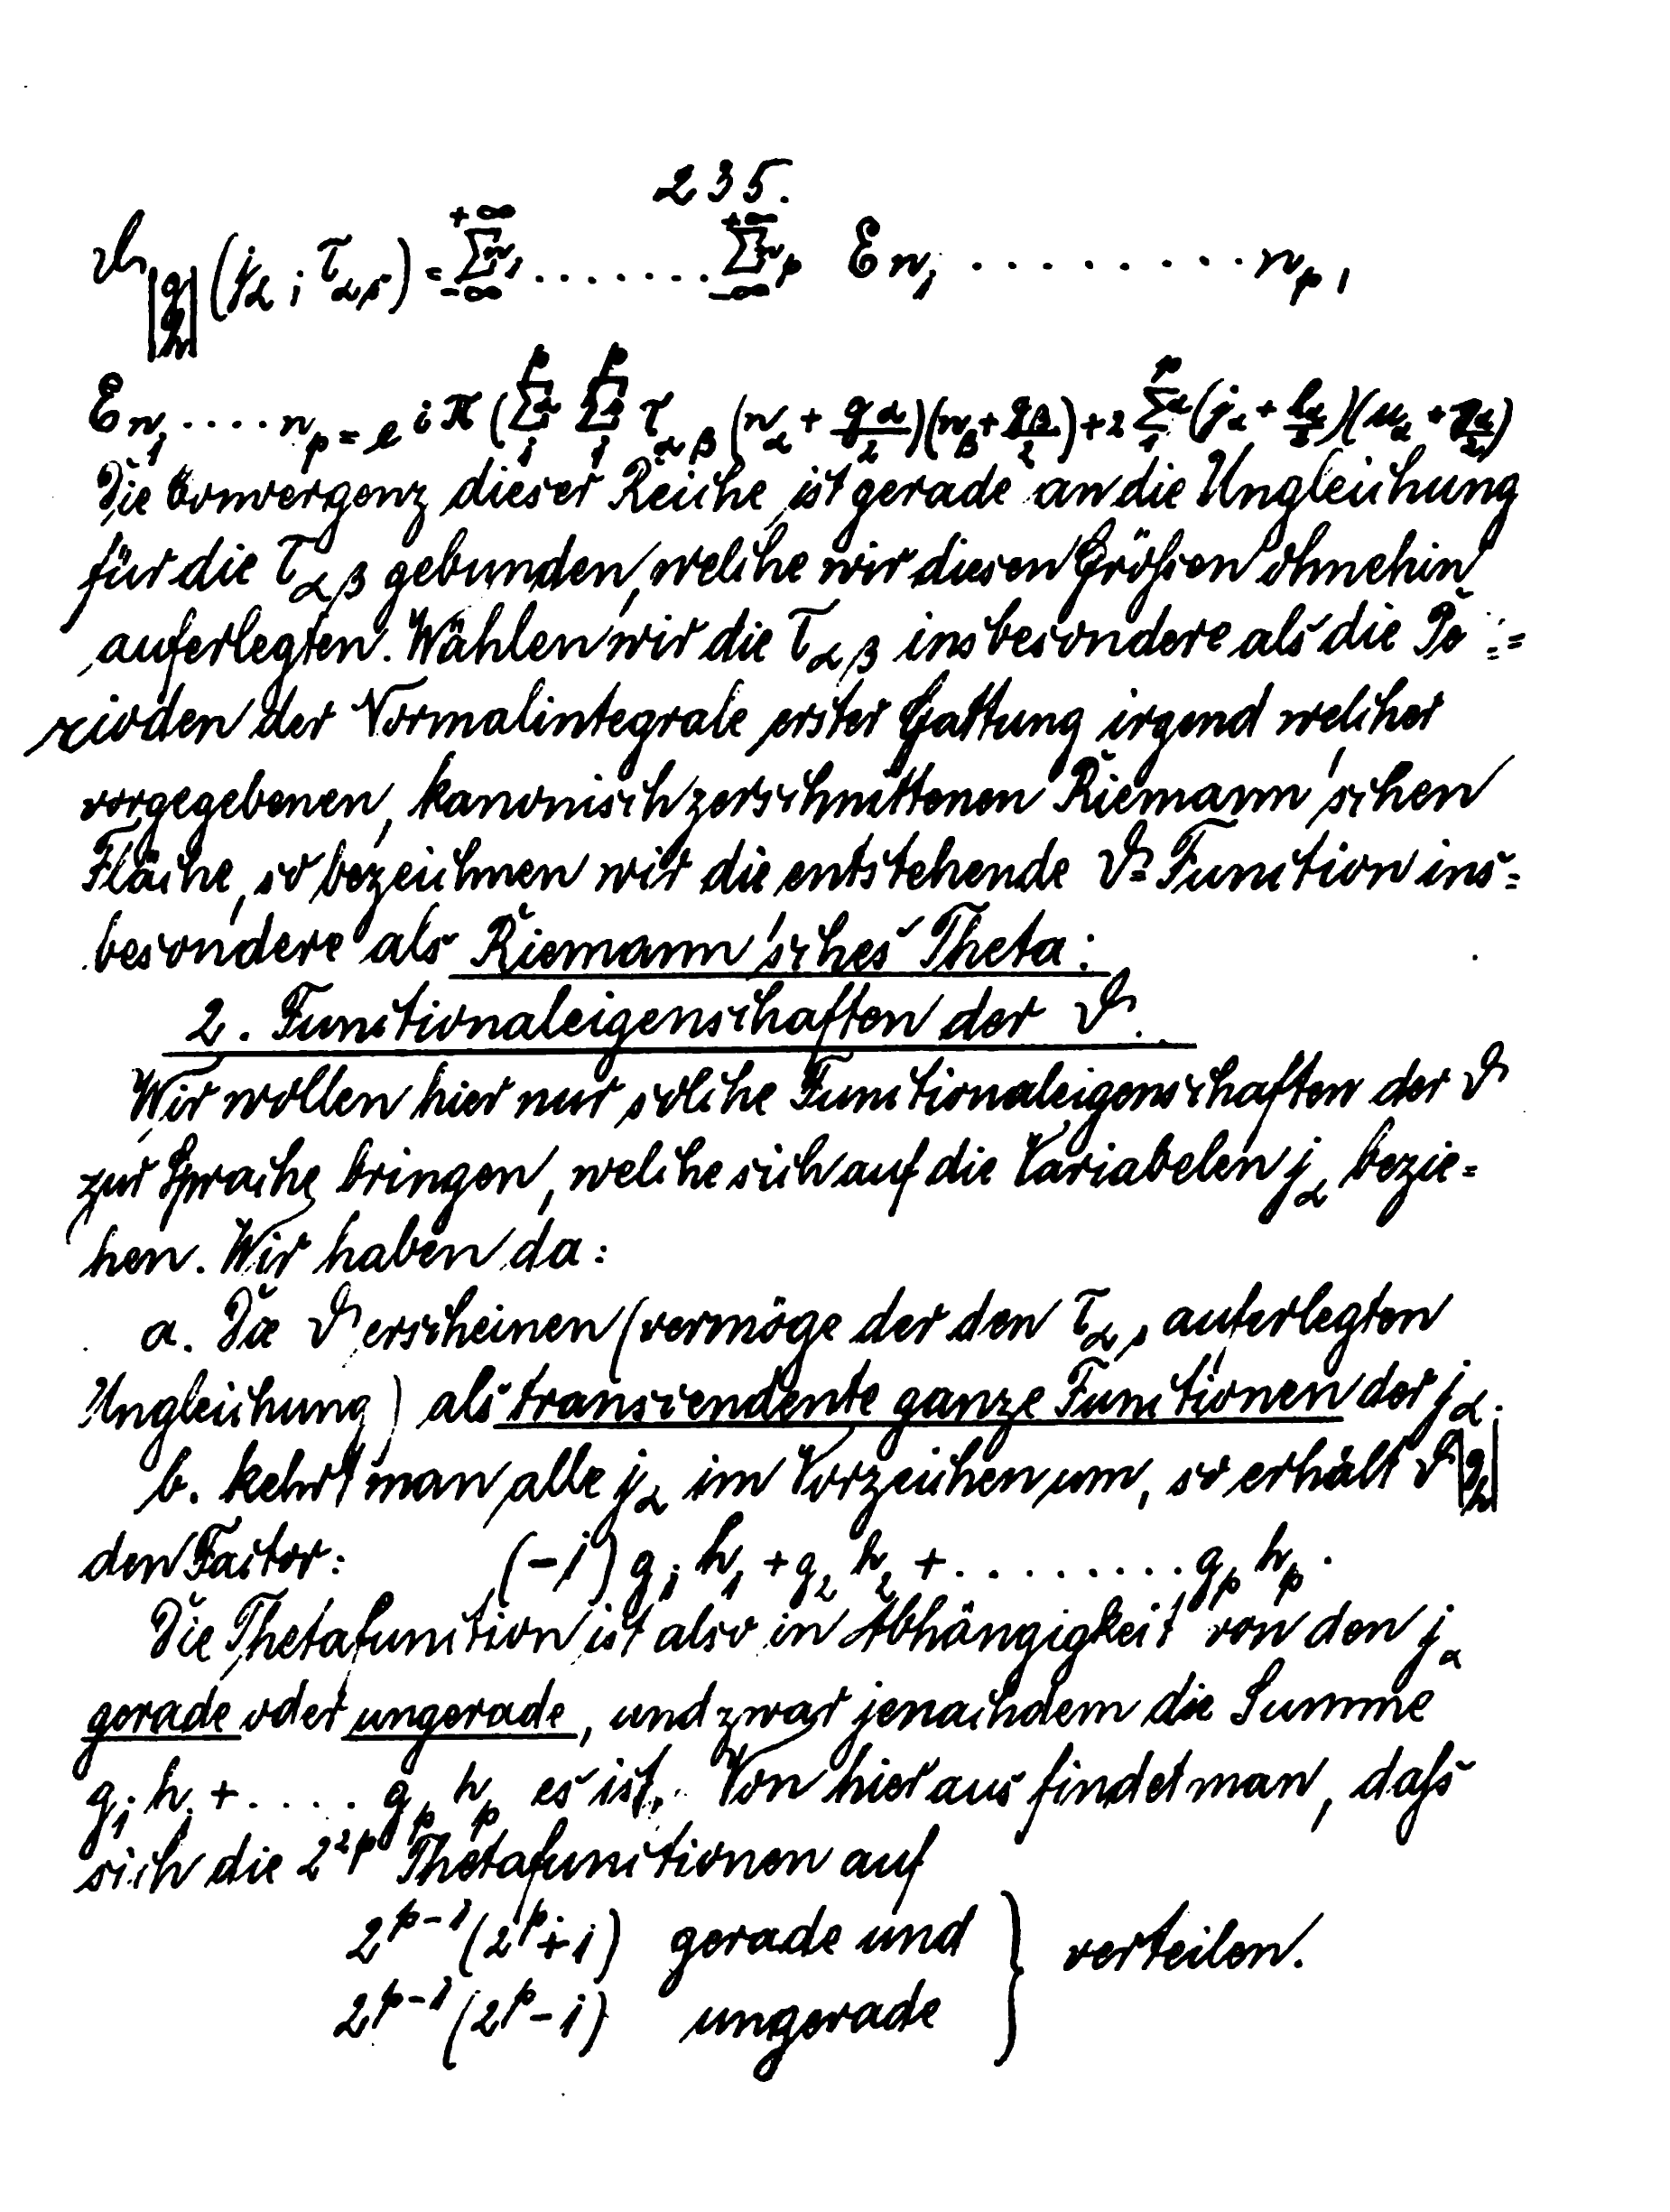 235.
ϑ|g h| (j_α ; τ_αβ) = Σ^{+∞}_{-∞} n_1 ........ Σ^{+∞}_{-∞} n_p E n_1 ......... n_p ,
E n_1 .... n_p = e^{iπ(Σ_1^p α Σ_1^p β τ_αβ (n_α + g_α/2)(n_β + g_β/2) + 2 Σ_1^p α (j_α + h_α/2)(n_α + g_α/2))}
Die Convergenz dieser Reihe ist gerade an die Ungleichung
für die τ_αβ gebunden, welche wir diesen Größen ohnehin
auferlegten. Wählen wir die τ_αβ insbesondere als die Pe=
rioden der Normalintegrale erster Gattung irgend welcher
vorgegebenen, kanonisch zerschnittenen Riemann'schen
Fläche, so bezeichnen wir die entstehende ϑ=Function ins=
besondere als Riemann'sches Theta:
2. Functionaleigenschaften der ϑ.
Wir wollen hier nur solche Functionaleigenschaften der ϑ
zur Sprache bringen, welche sich auf die Variabelen j_α bezie=
hen. Wir haben da:
a. Die ϑ erscheinen (vermöge der den τ_αβ auferlegten
Ungleichung) als transcendente ganze Functionen der j_α.
b. kehrt man alle j_α im Vorzeichen um, so erhält ϑ|g h|
den Factor: (-1) g_1 h_1 + g_2 h_2 + ......... g_p h_p .
Die Thetafunction ist also in Abhängigkeit von den j_α
gerade oder ungerade, und zwar jenachdem die Summe
g_1 h_1 + .... g_p h_p es ist. Von hier aus findet man, daß
sich die 2^{2p} Thetafunctionen auf
2^{p-1} (2^p + 1) gerade und } verteilen.
2^{p-1} (2^p - 1) ungerade